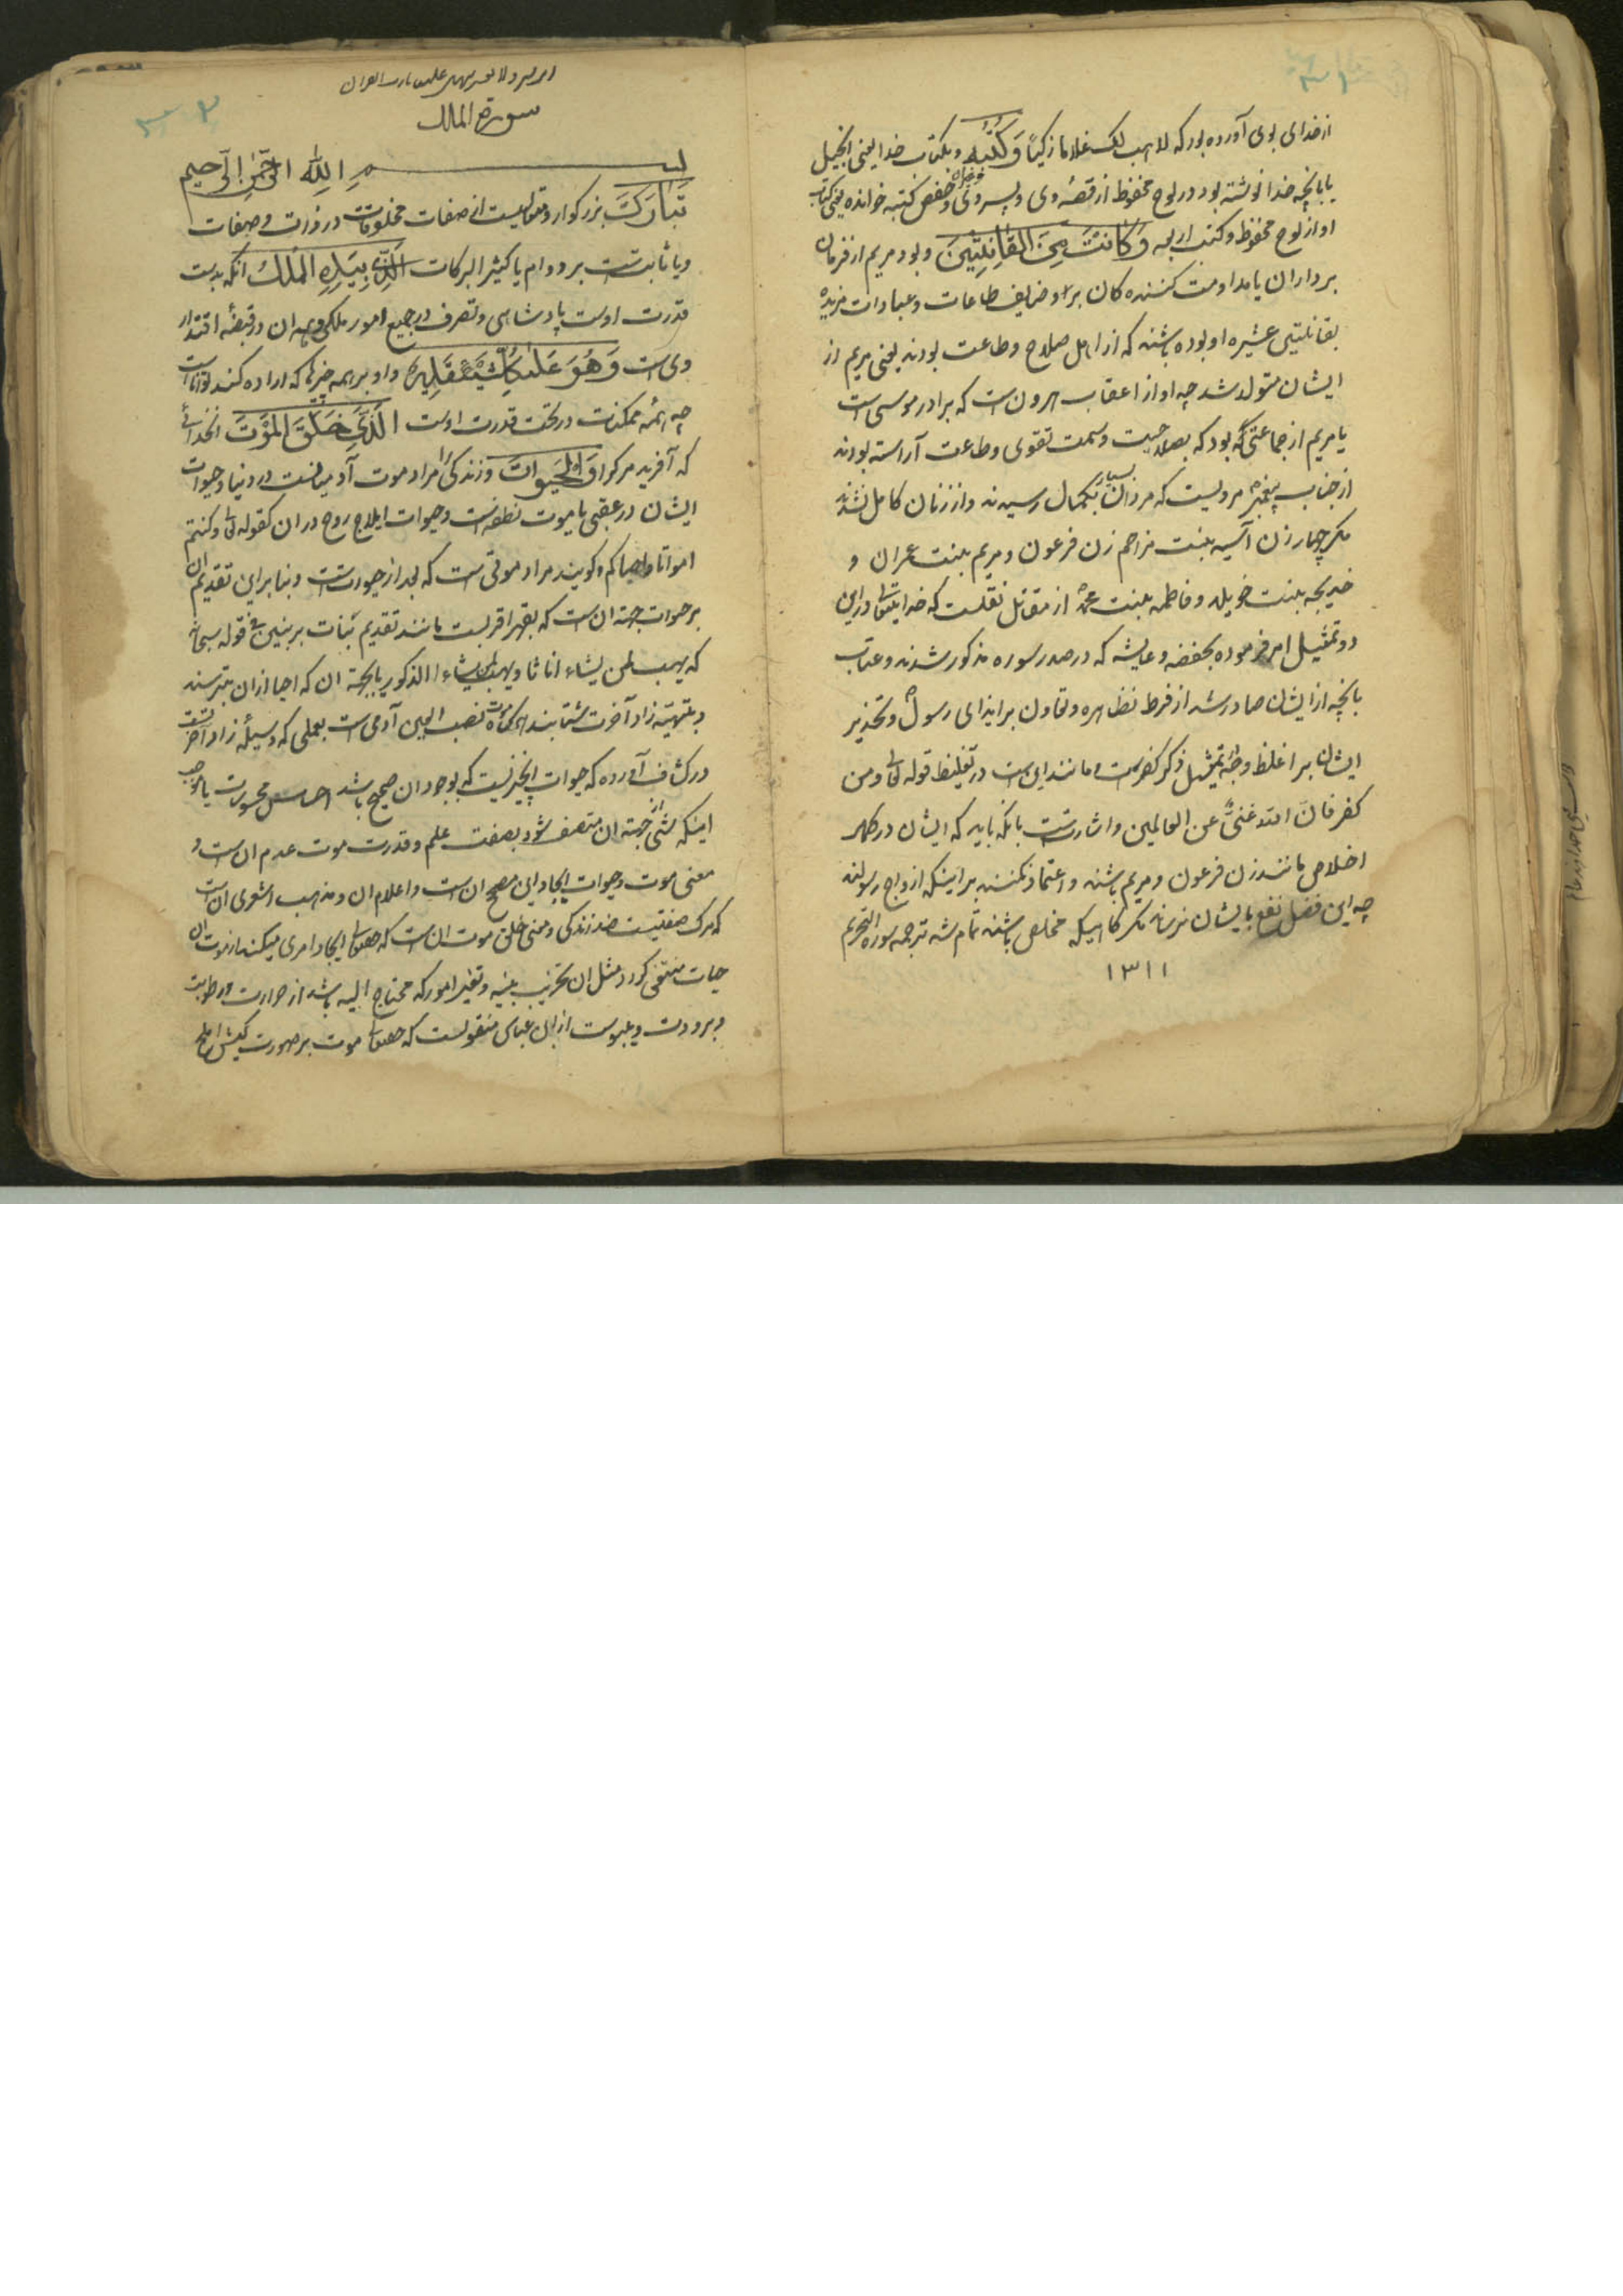 از خدای بوی آورده بود که لاهب لک غلاما زکیا وَكُتُبِهِ و بکتاب خدا یعنی انجیل
یا بانچه خدا نوشته بود در لوح محفوظ از قصه وی و پسر وی و حفص کتبه خوانده یعنی کتاب
او از لوح محفوظ و کتب اربعه وَكَانَتْ مِنَ الْقَانِتِينَ و بود مریم از فرمان
برداران یا مداومت کننده کان بر وضایف طاعات و عبادات
بقانتین عشیره او بوده باشند که از اهل صلاح و طاعت بودند یعنی مریم از
ایشان متولد شد چه او از اعقاب هرون است که برادر موسی است
یا مریم از جماعتی بود که بصلاحیت وسمت تقوی و طاعت آراسته بودند
از جناب پیغمبر مرویست که مردان بسیار بکمال رسیدند و از زنان کامل نشدند
مکر چهار زن آسیه بنت مزاحم زن فرعون و مریم بنت عمران و
خدیجه بنت خویلد و فاطمه بنت محمد از مقاتل نقلست که خدایتعالی در این
دو تمثیل امر فرموده بحفصه و عایشه که در صدر سوره مذکور شدند و عتاب
بانچه از ایشان صادر شد از فرط تظاهره و تعاون بر ایذای رسول و تحذیر
ایشان بر اغلظ وجه تمثیل ذکر کفرست و مانند این است در تغلیظ قوله تعالی ومن
کفر فان الله غنی عن العالمین و اشارتست بانکه باید که ایشان در
اخلاص مانند زن فرعون و مریم باشند و اعتماد نکنند بر اینکه ازواج رسولند
چه این فضل نفع بایشان نرساند مکر کاهیکه مخلص باشند تمام شد ترجمه سوره التحریم
١٣١١
سورة الملک
بسم الله الرحمن الرحیم
تَبَارَكَ بزرکوار و متعالیست از صفات مخلوقات در ذات و صفات
و یا ثابتست بر دوام یا کثیر البرکات الَّذِي بِيَدِهِ الْمُلْكُ انکه بدست
قدرت اوست پادشاهی و تصرف در جمیع امور ملکی و همه ان در قبضه اقتدار
وی است وَهُوَ عَلَىٰ كُلِّ شَيْءٍ قَدِيرٌ و او بر همه چیزها که اراده کند تواناست
چه همه ممکنات در تحت قدرت اوست الَّذِي خَلَقَ الْمَوْتَ انخدائی
که آفرید مرک را وَالْحَيٰوةَ و زندکی را مراد موت آدمیانست در دنیا و حیوات
ایشان در عقبی یا موت نطفه است و حیوات ایلاج روح در ان کقوله تعالی وکنتم
امواتا فاحیاکم و کویند مراد موتی است که بعد از حیوتست و بنا بر این تقدیم ان
بر حیوات جهة ان است که بقهر اقربست مانند تقدیم بنات بر بنین فی قوله سبحانه
که یهب لمن یشاء اناثا ویهب لمن یشاء الذکور یا بجهة ان که احیا از ان بترسند
و بتهیئه زاد آخرت شتابند موت نصب العین آدمی است بعملی که وسیله زاد آخرت
در کشاف آورده که حیوات چیزیست که بوجود ان صحیح باشد احساس
اینکه شی از جهة ان متصف شود بصفت علم و قدرت موت عدم ان است و
معنی موت و حیوات ایجاد این مصحح ان است و اعلام ان و مذهب اشعری ان است
که مرک صفتیست ضد زندکی و معنی خلق موت ان است که حقتعالی ایجاد امری میکند
حیات منتفی کردد مثل ان تخریب بنیه و تغیر امور که محتاج الیه باشد از حرارت و رطوبت
و برودت و یبوست از ابن عباس منقولست که حقتعالی موت بر صورت کبش املح